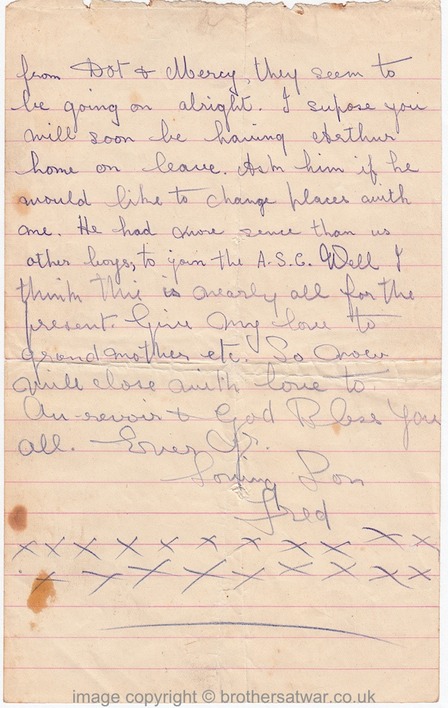 from Dot & Mercy, they seem to
be going on alright. I supose you
will soon be having Arthur
home on leave. Ask him if he
would like to change places with
me. He had more sence than us
other boys, to join the A.S.C. Well I
think this is nearly all for the
present. Give my love to
grandmother etc. So now
will close with love to
Au-revoir & God Bless You
all. Ever Yr.
Loving Son
Fred
x x x x x x x x x x x
x x x x x x x x x
image copyright © brothersatwar.co.uk